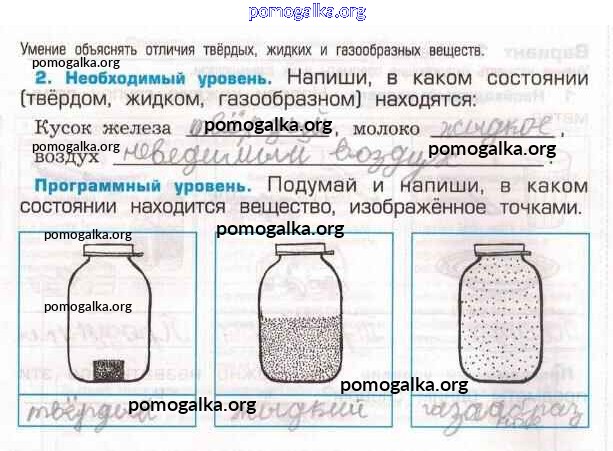 pomogalka.org
Умение объяснять отличия твёрдых, жидких и газообразных веществ.
pomogalka.org
2. Необходимый уровень. Напиши, в каком состоянии
(твёрдом, жидком, газообразном) находятся:
Кусок железа твёрдый pomogalka.org, молоко жыдкое,
pomogalka.org
воздух неведимый воздух pomogalka.org.
Программный уровень. Подумай и напиши, в каком
состоянии находится вещество, изображённое точками.
pomogalka.org pomogalka.org pomogalka.org
pomogalka.org
pomogalka.org
твёрдый pomogalka.org жыдкий газаобраз
ное
pomogalka.org